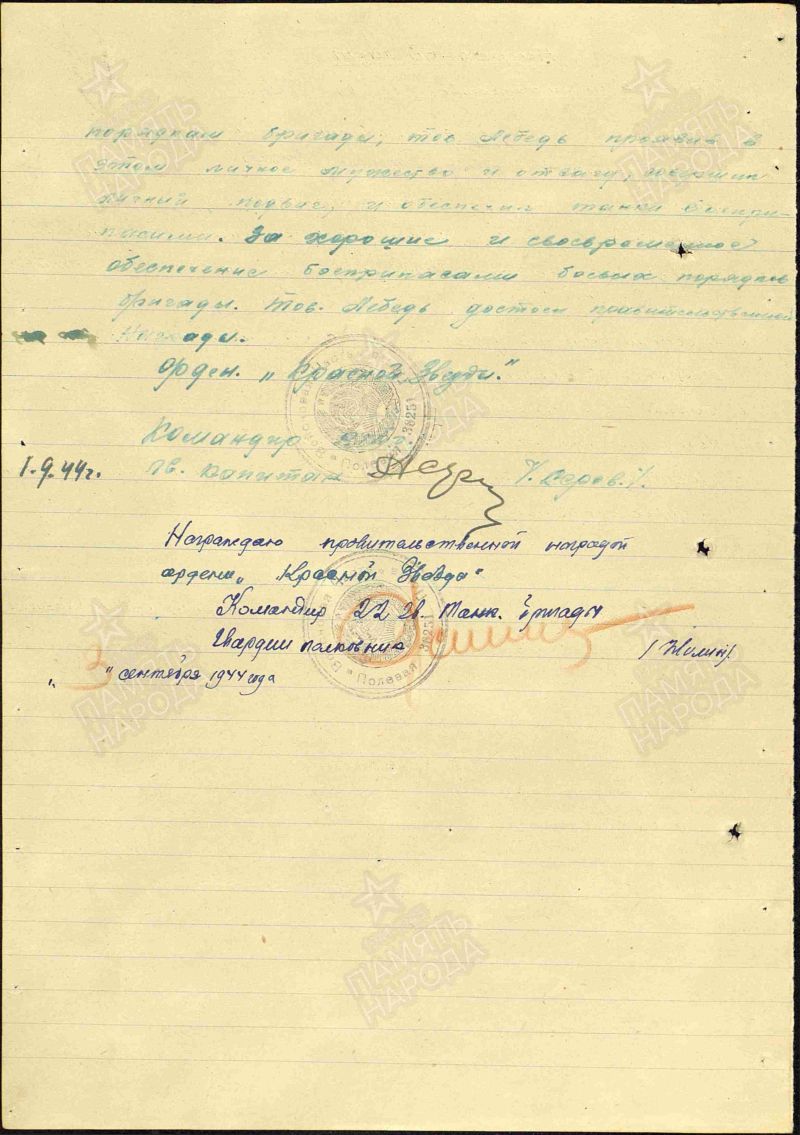 порядкам бригады, тов Лебедь проявив в
этом личное мужество и отвагу, совершил
личный подвиг, и обеспечил танки боепри-
пасами. За хорошие и своевременное
обеспечение боеприпасами боевых порядков
бригады. Тов. Лебедь достоен правительственной
награды.
Орден. „Красной Звезды."
Командир
1.9.44г. гв. капитан
Награждаю правительственной наградой
ордена „Красной Звезда"
Командир 22 гв. танк. бригады
Гвардии полковник
" сентября 1944 года
Полевая 38251
Полевая 38251
ПАМЯТЬ НАРОДА
ПАМЯТЬ НАРОДА
ПАМЯТЬ НАРОДА
ПАМЯТЬ НАРОДА
ПАМЯТЬ НАРОДА
ПАМЯТЬ НАРОДА